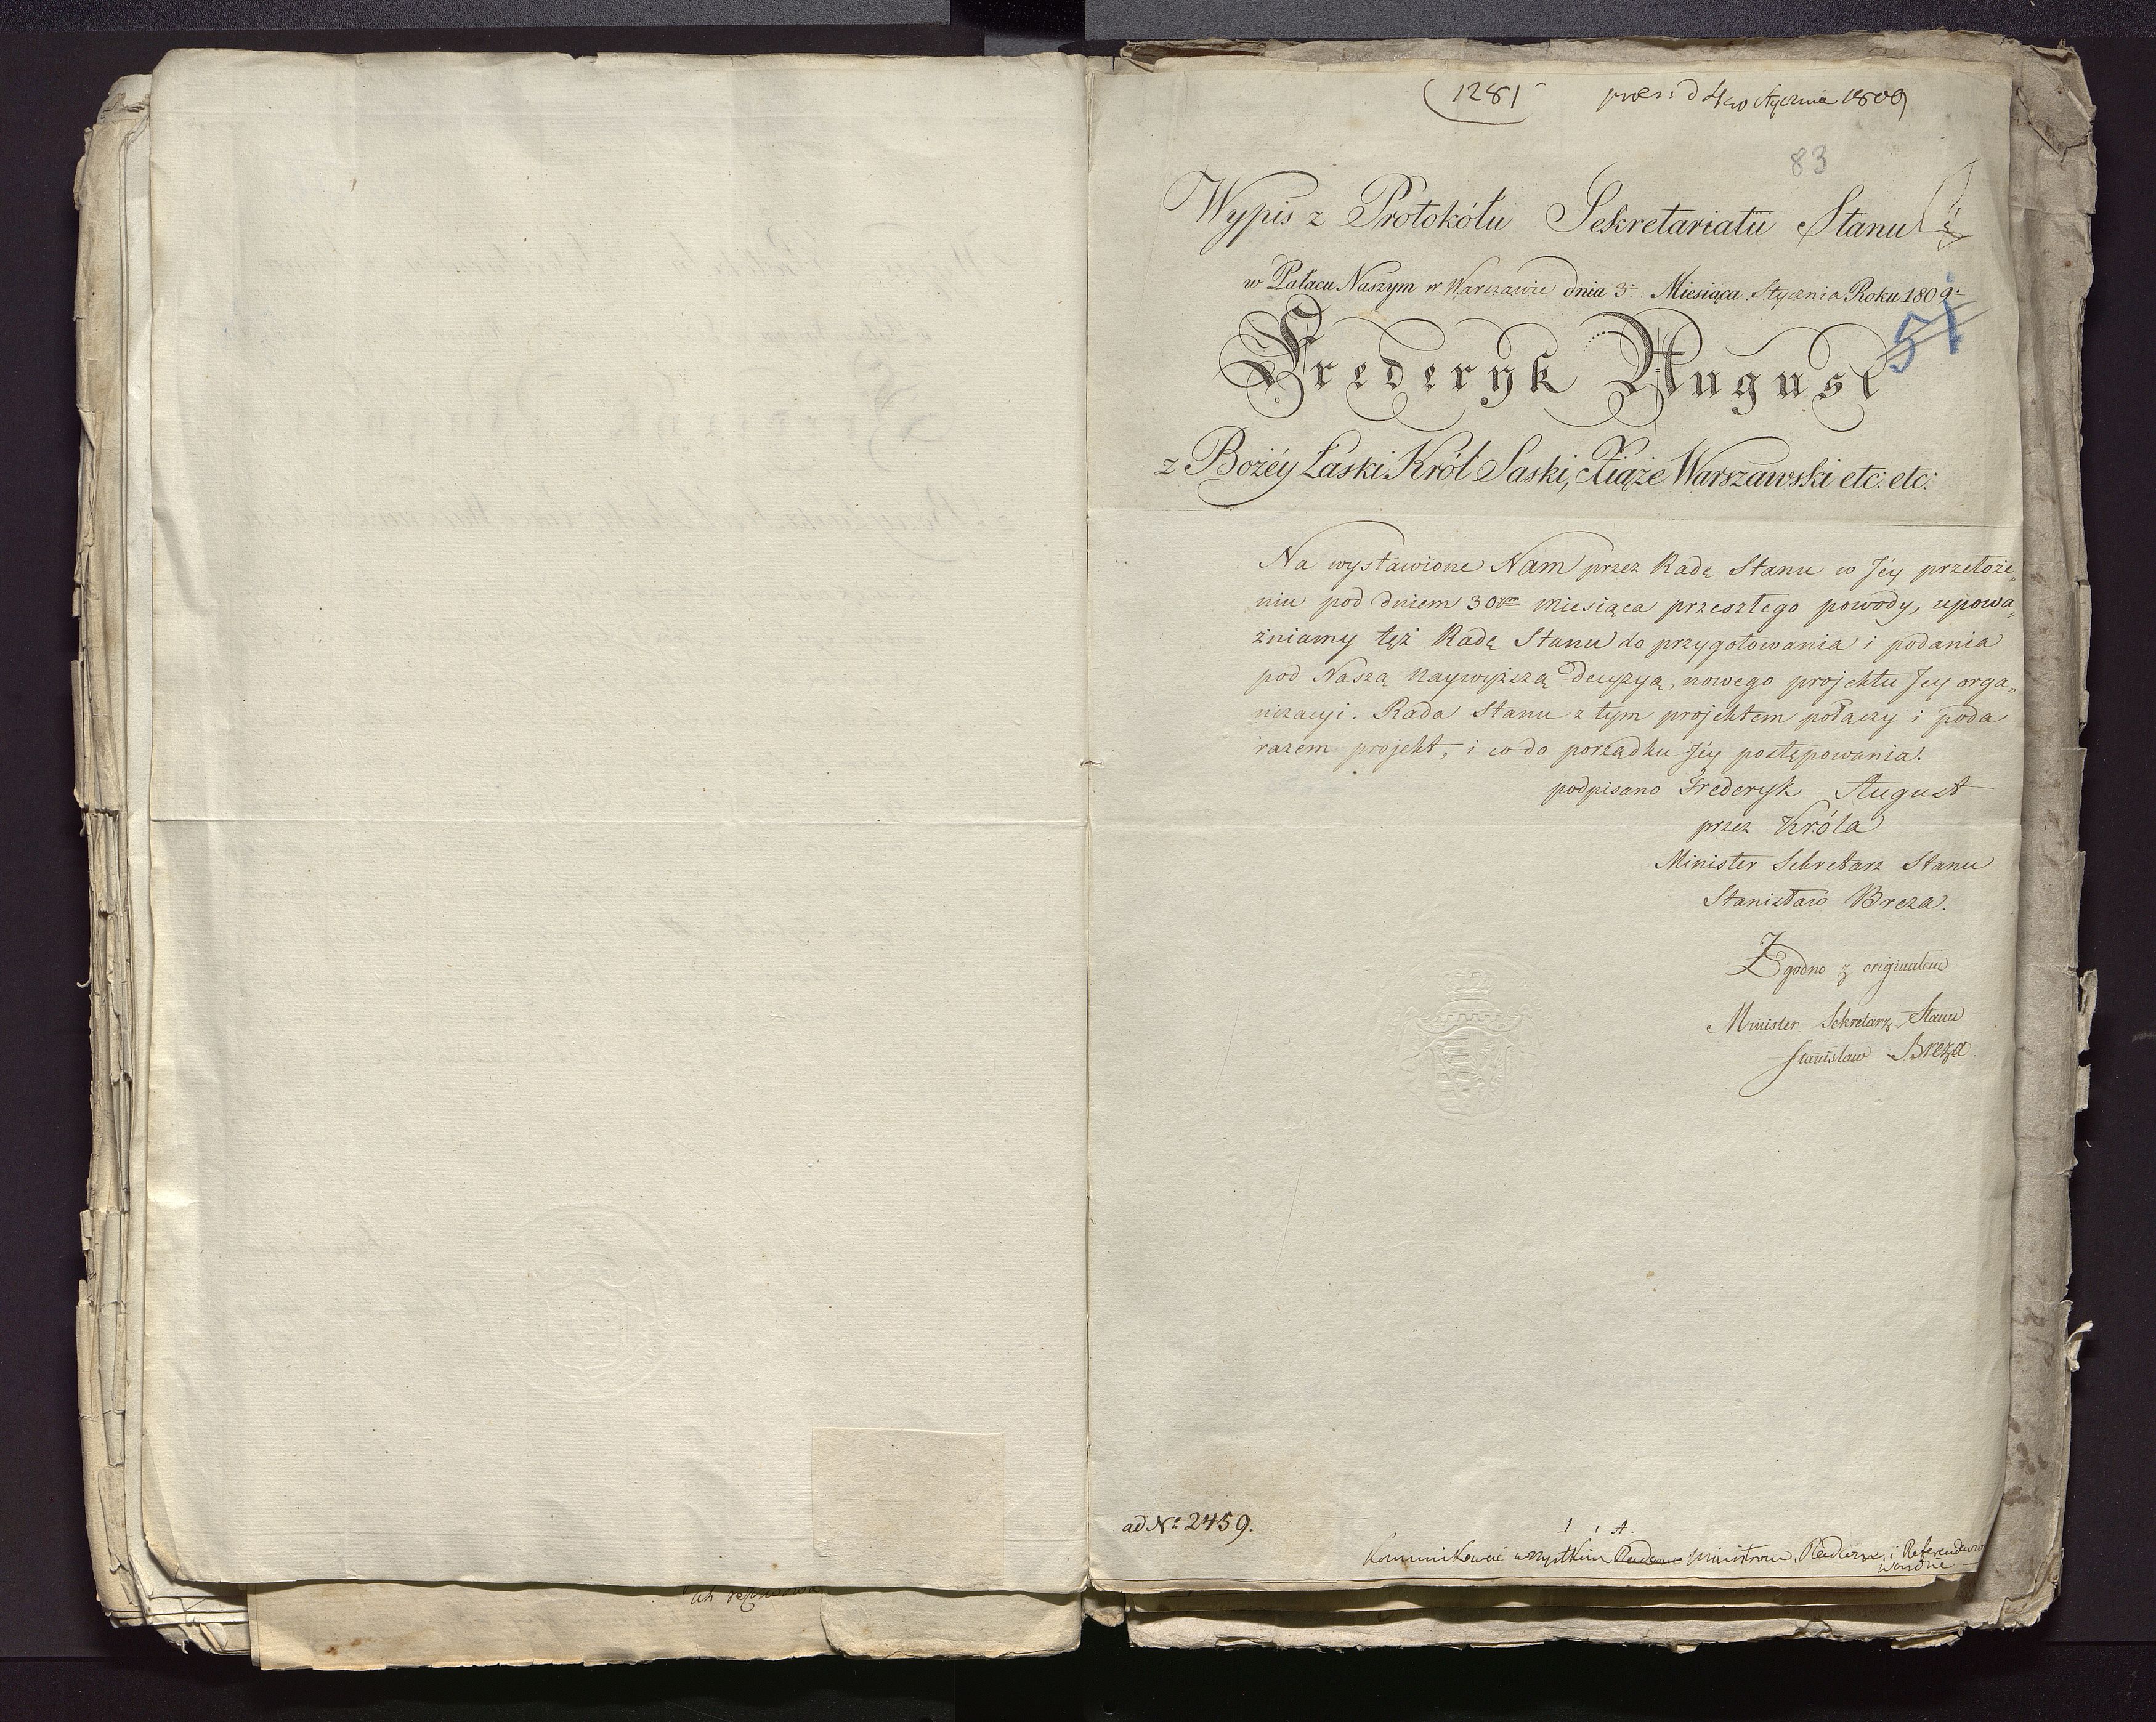 1281 præs: d 4go Stycznia 1809
83
Wypis z Protokółu Sekretariatu Stanu
w Pałacu Naszym w Warszawie dnia 3. Miesiąca Stycznia Roku 1809.
51
Fryderyk August
z Bożéy Łaski Król Saski, Xiąże Warszawski etc: etc:
Na wystawione Nam przez Radę Stanu w Jéy przełoże„
niu pod dniem 30tym miesiąca przeszłego powody, upowa„
żniamy też Radę Stanu do przygotowania i podania
pod Naszą naywyższą decyzyą, nowego projektu Jey orga„
nizacyi. Rada Stanu z tym projektem połączy i poda
razem projekt, i co do porządku Jéy postępowania.
podpisano Frederyk August
przez Króla
Minister Sekretarz Stanu
Stanisław Breza.
Zgodno z originałem
Minister Sekretarz Stanu
Stanisław Breza.
ad No 2459.
Kommunikować wszystkim Ministrom, Radcom, i Referendarzom